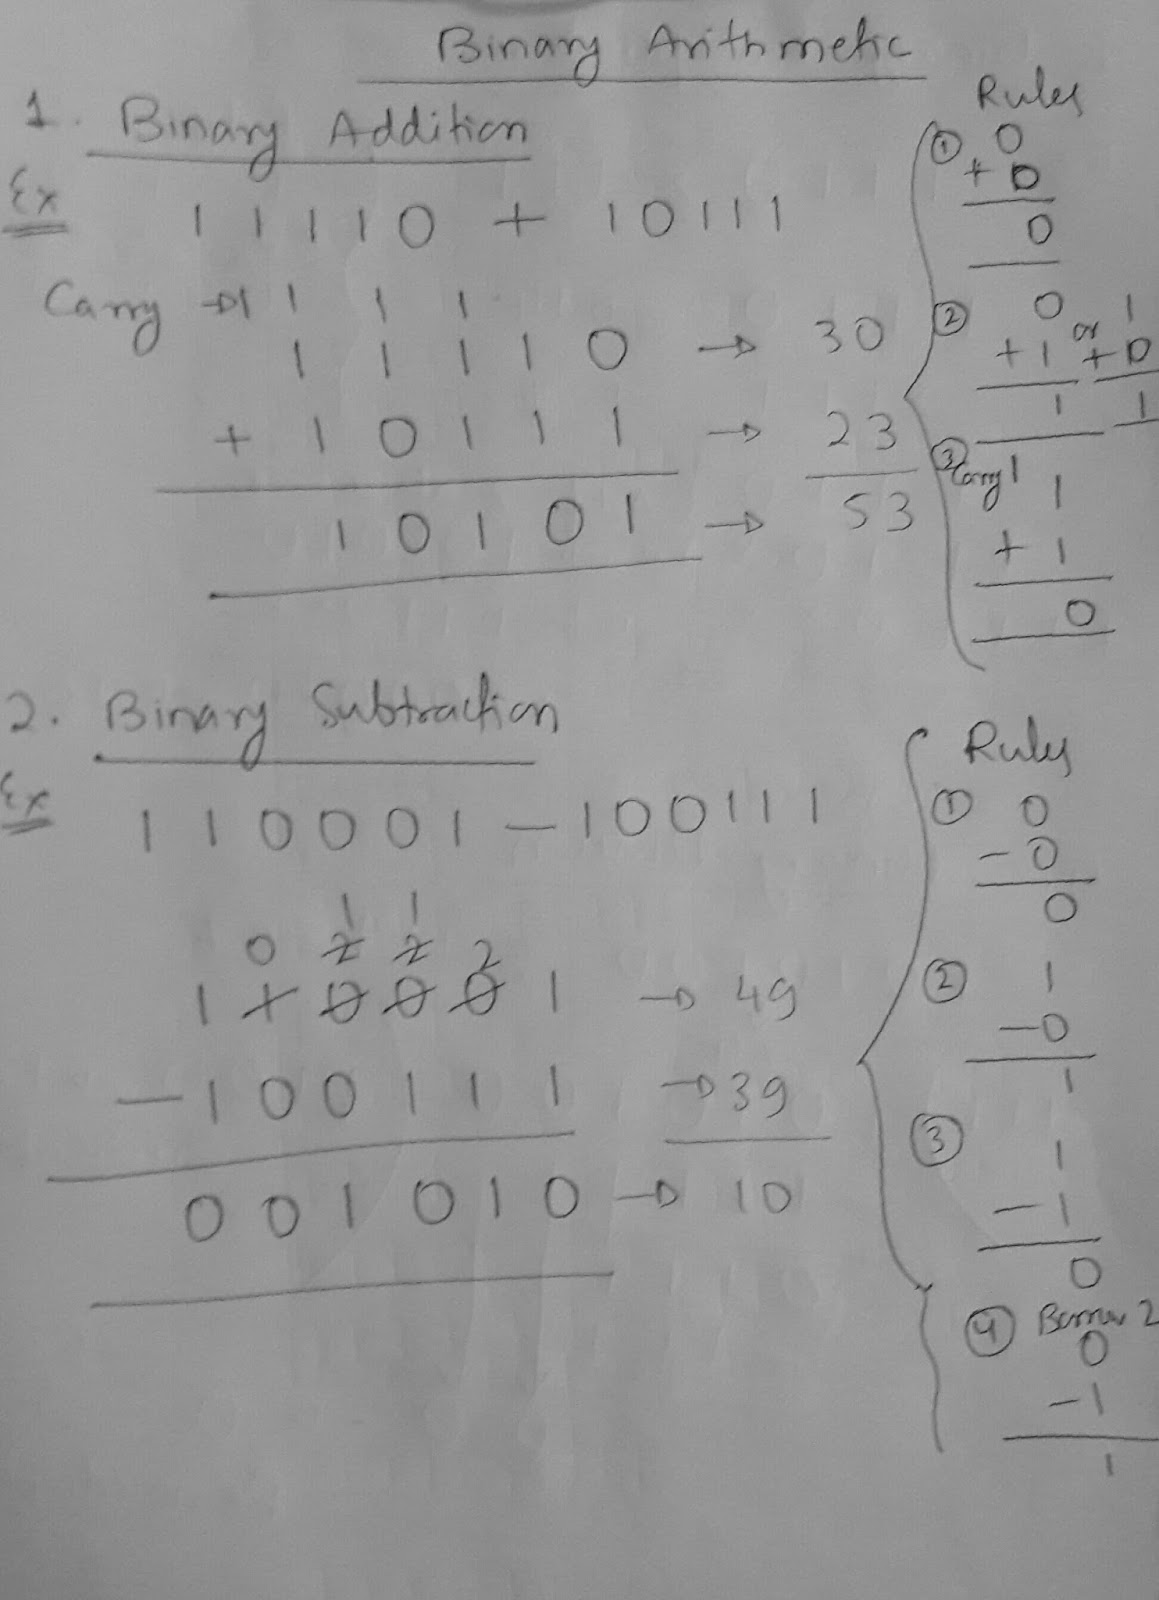 Binary Arithmetic
1. Binary Addition
Ex
1 1 1 1 0 + 1 0 1 1 1
Carry → 1 1 1 1
1 1 1 1 0 → 30
+ 1 0 1 1 1 → 23
1 0 1 0 1 → 53
Rules
① 0
+ 0
0
② 0 or 1
+ 1 + 0
1 1
③ Carry 1 1
+ 1
0
2. Binary Subtraction
Ex
1 1 0 0 0 1 - 1 0 0 1 1 1
1 1
0 2 2 2
1 1 0 0 0 1 → 49
- 1 0 0 1 1 1 → 39
0 0 1 0 1 0 → 10
Rules
① 0
- 0
0
② 1
- 0
1
③ 1
- 1
0
④ Borrow 2
0
- 1
1